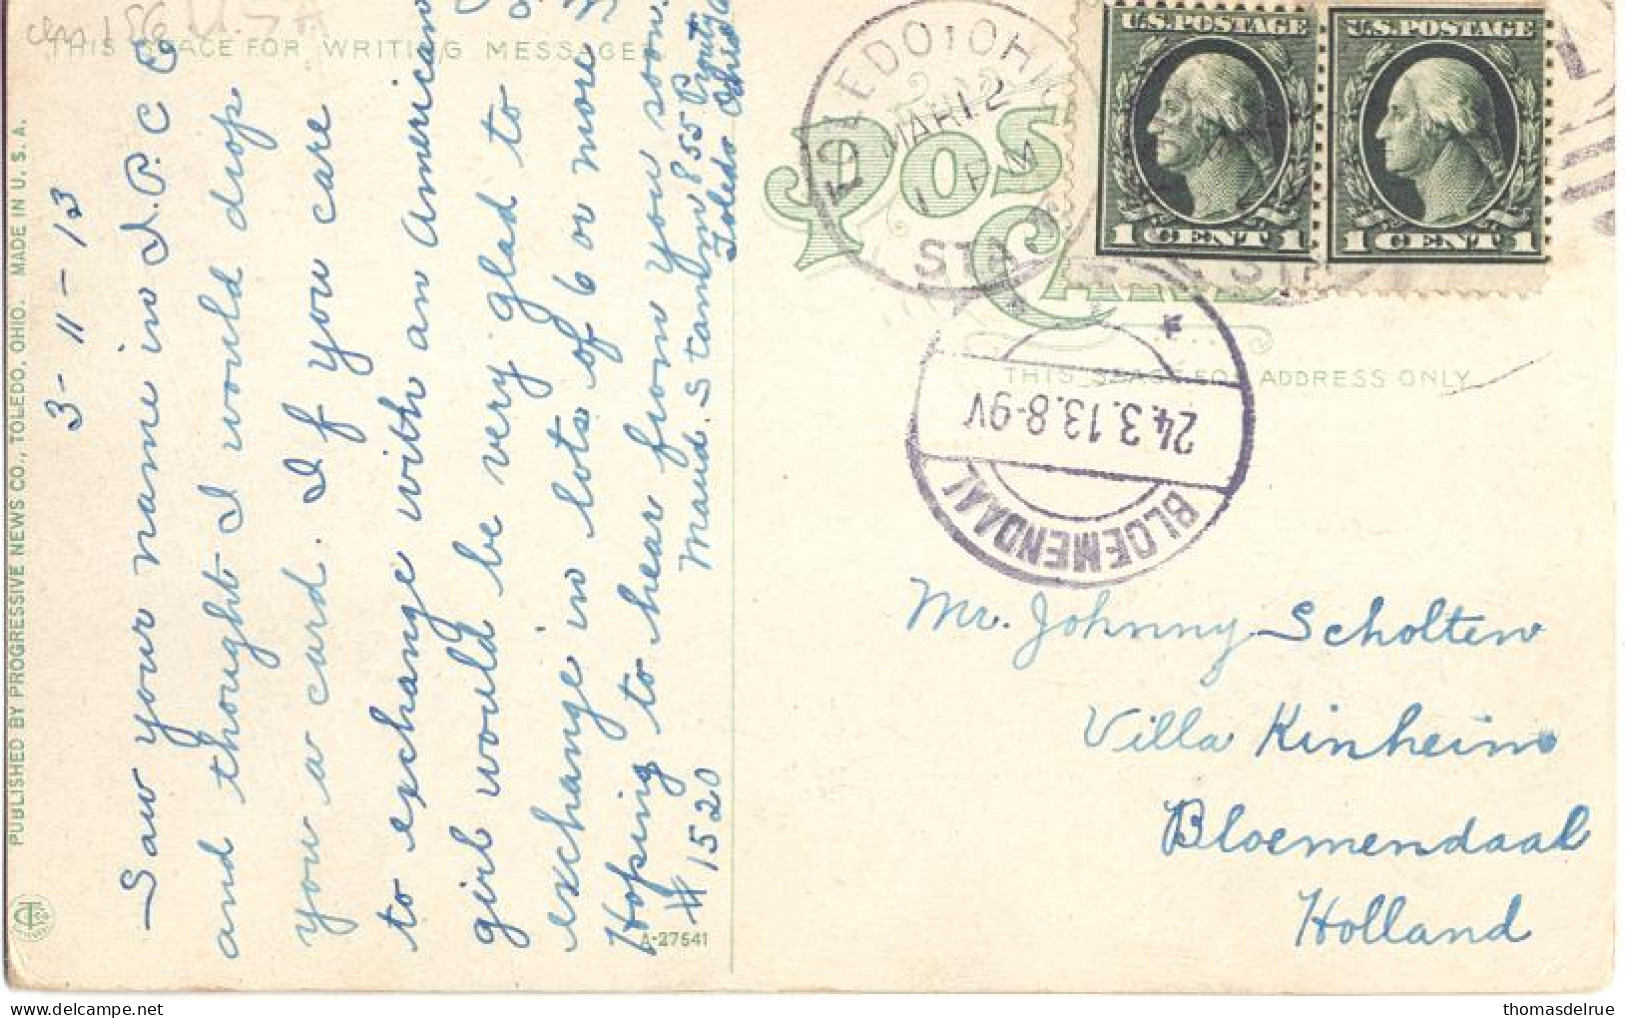 THIS SPACE FOR WRITING MESSAGES
PUBLISHED BY PROGRESSIVE NEWS CO., TOLEDO, OHIO. MADE IN U. S. A.
3-11-13
Saw your name in I.P.C.E
and thought I would drop
you a card. If you care
to exchange with an American
girl would be very glad to
exchange in lots of 6 or more
Hoping to hear from you soon.
#1520 Maud. Stamm 855
Toledo Ohio
A-27541
POST CARD
THIS SPACE FOR ADDRESS ONLY
TOLEDO, OHIO
MAR 12
1 PM
STA
U.S. POSTAGE
1 CENT 1
U.S. POSTAGE
1 CENT 1
24.3.13.8-9V
BLOEMENDAAL
Mr. Johnny Scholten
Villa Kinheim
Bloemendaal
Holland
thomasdelrue